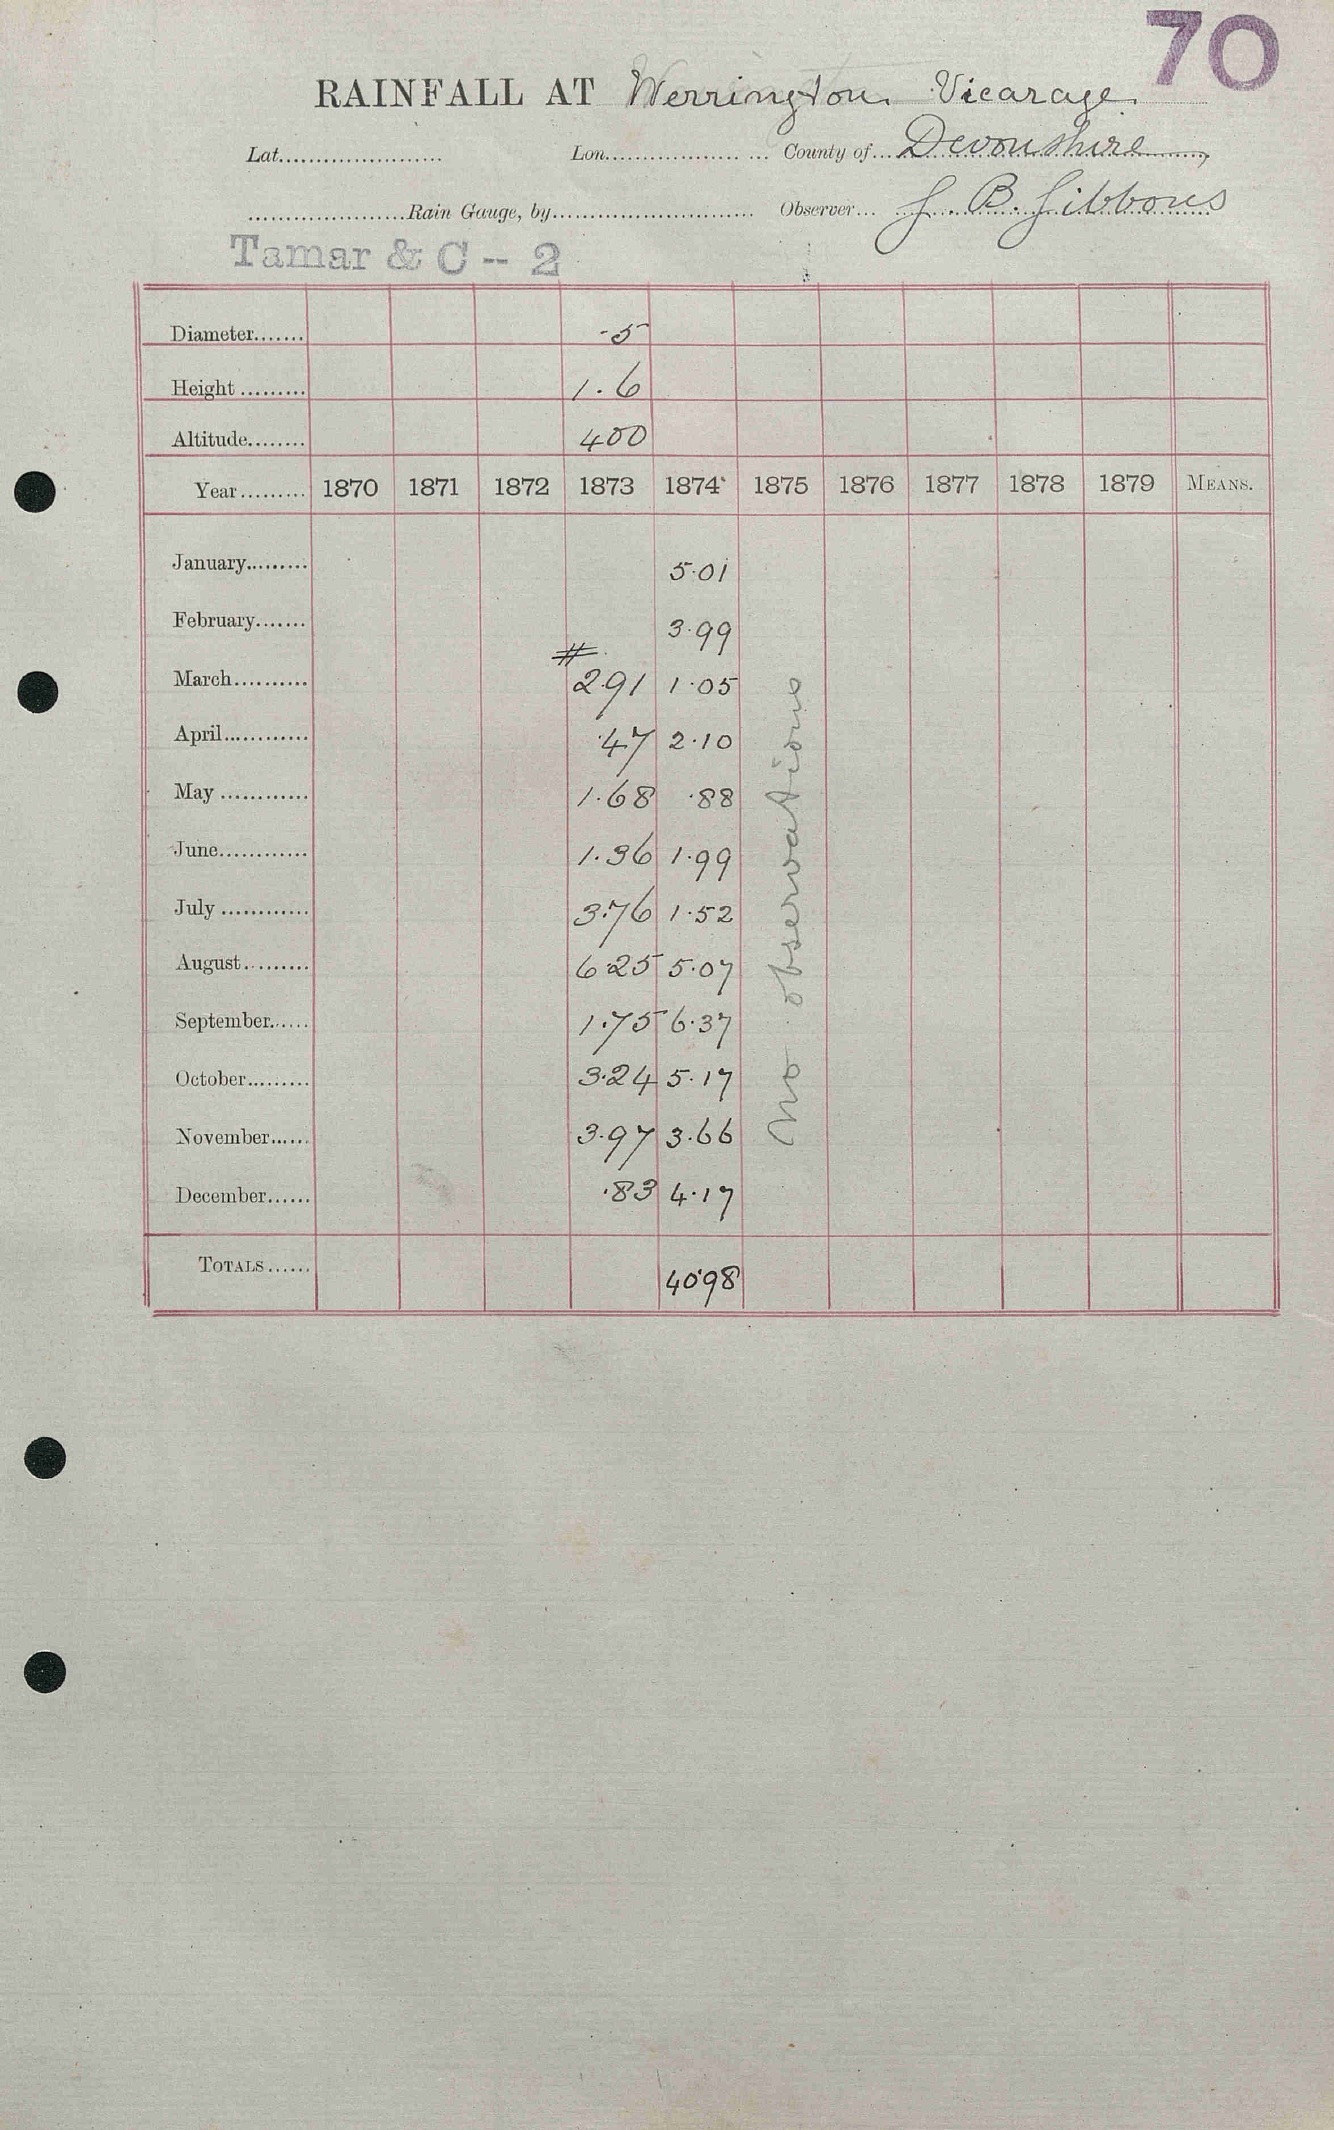 70
RAINFALL AT Werrington Vicarage
Lat...................... Lon.................. ... County of... Devonshire
.....................Rain Gauge, by.......................... Observer... J. B. Gibbons
Tamar & C -- 2
Diameter....... 5
Height ......... 1.6
Altitude........ 400
Year......... 1870 1871 1872 1873 1874 1875 1876 1877 1878 1879 MEANS.
January......... 5.01
February....... 3.99
#
March.......... 2.91 1.05
April............ .47 2.10
May ............ 1.68 .88
June............ 1.36 1.99
July ............ 3.76 1.52
August.......... 6.25 5.07
September...... 1.75 6.37
October......... 3.24 5.17
November...... 3.97 3.66
December...... .83 4.17
no observations
TOTALS...... 40.98